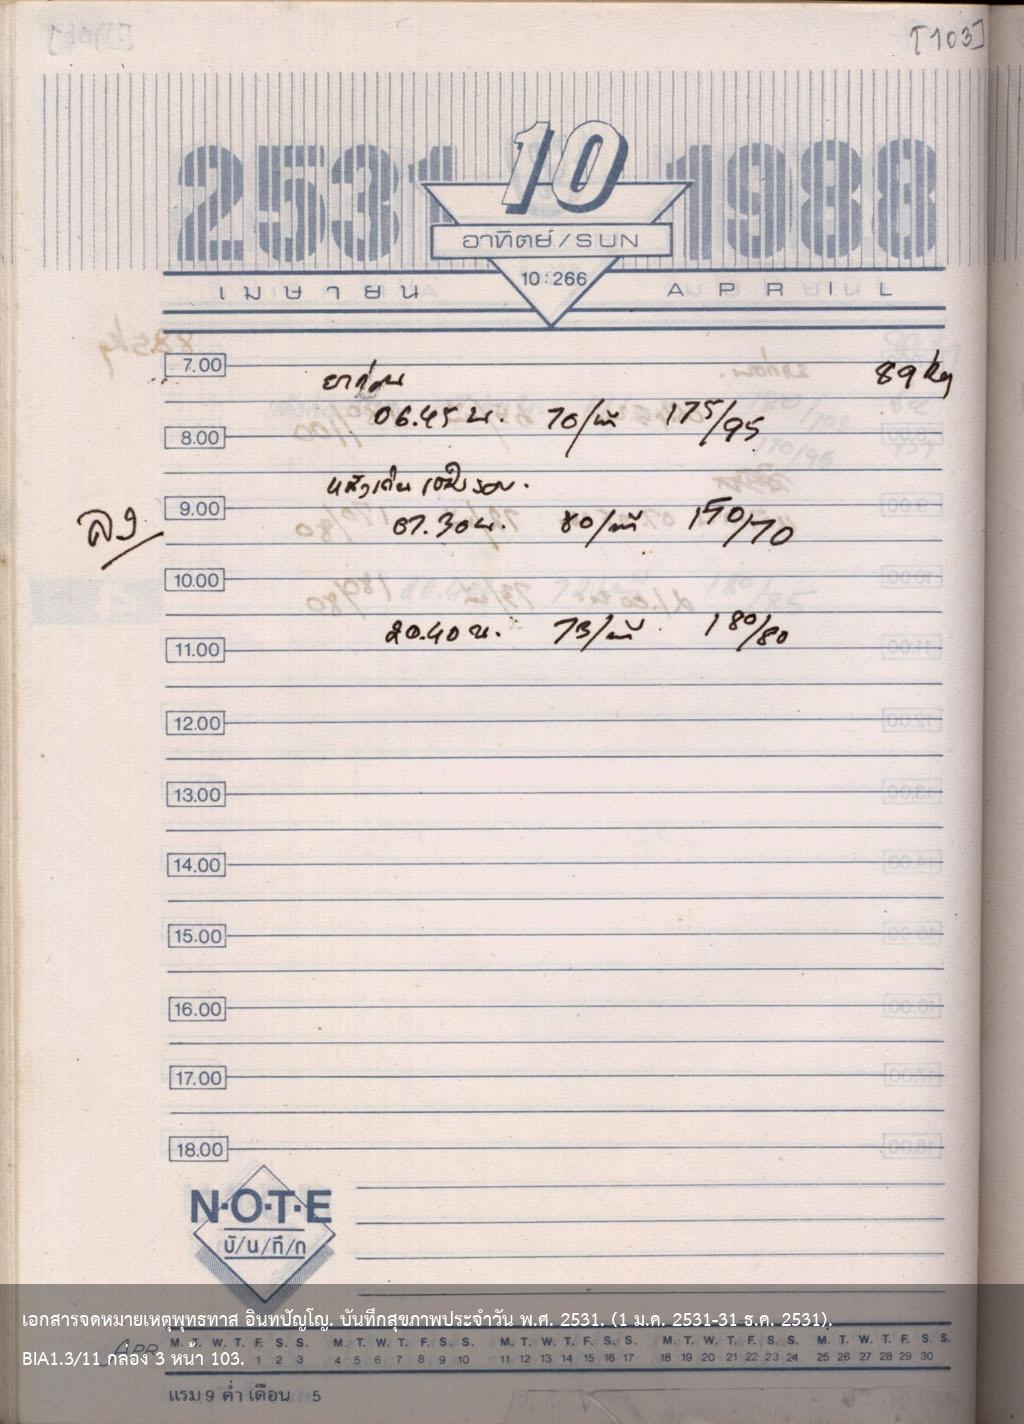 [103]
2531 10 1988
อาทิตย์/SUN
10:266
เมษายน APRIL
7.00
ยาก่อน 89 kg
06.45 น. 70/นาที 175/95
8.00
9.00
ลง 07.30 น. 80/นาที 150/70
10.00
20.40 น. 73/นาที 180/80
11.00
12.00
13.00
14.00
15.00
16.00
17.00
18.00
N·O·T·E
บั/น/ทึ/ก
เอกสารจดหมายเหตุพุทธทาส อินทปัญโญ. บันทึกสุขภาพประจำวัน พ.ศ. 2531. (1 ม.ค. 2531-31 ธ.ค. 2531).
APR M. T. W. T. F. S. S. M. T. W. T. F. S. S. M. T. W. T. F. S. S. M. T. W. T. F. S. S. M. T. W. T. F. S. S.
BIA1.3/11 กล่อง 3 หน้า 103. 1 2 3 4 5 6 7 8 9 10 11 12 13 14 15 16 17 18 19 20 21 22 23 24 25 26 27 28 29 30
แรม 9 ค่ำ เดือน 5